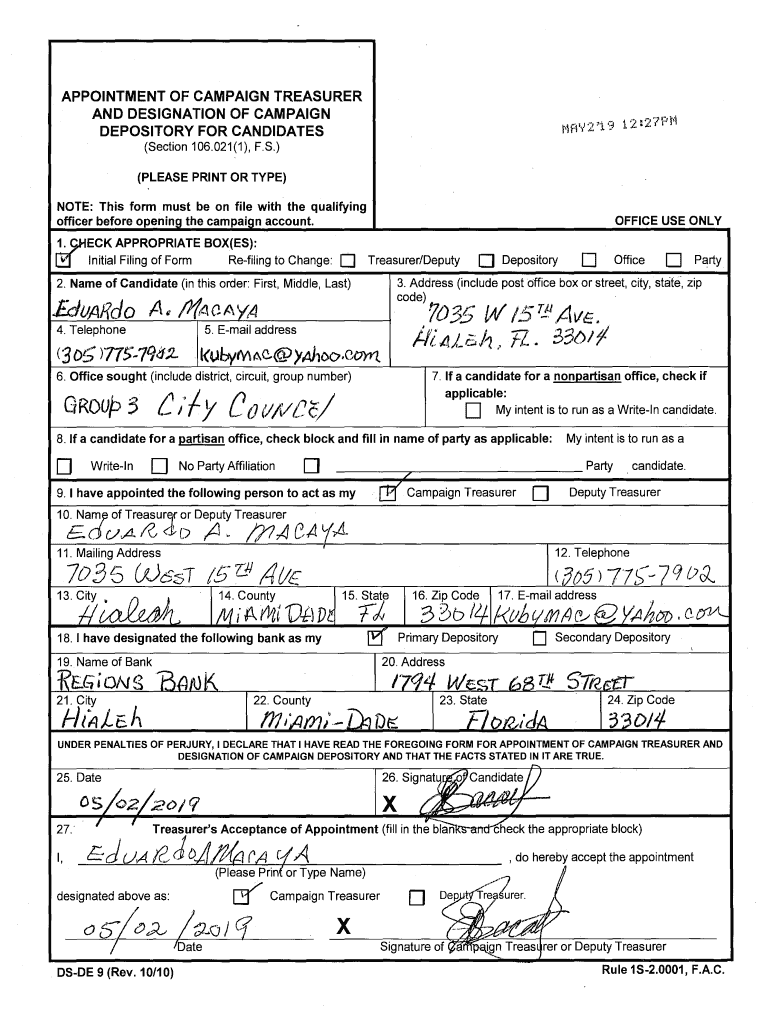 APPOINTMENT OF CAMPAIGN TREASURER
AND DESIGNATION OF CAMPAIGN
DEPOSITORY FOR CANDIDATES
(Section 106.021(1), F.S.)
(PLEASE PRINT OR TYPE)
NOTE: This form must be on file with the qualifying
officer before opening the campaign account.
MAY2'19 12:27PM
OFFICE USE ONLY
1. CHECK APPROPRIATE BOX(ES):
Initial Filing of Form Re-filing to Change: Treasurer/Deputy Depository Office Party
2. Name of Candidate (in this order: First, Middle, Last)
EDUARDO A. MACAYA
3. Address (include post office box or street, city, state, zip
code)
7035 W 15TH AVE.
HIALEH, FL. 33014
4. Telephone
(305)775-7902
5. E-mail address
KUBYMAC@YAHOO.COM
6. Office sought (include district, circuit, group number)
GROUP 3 CITY COUNCEL
7. If a candidate for a nonpartisan office, check if
applicable:
My intent is to run as a Write-In candidate.
8. If a candidate for a partisan office, check block and fill in name of party as applicable: My intent is to run as a
Write-In No Party Affiliation Party candidate.
9. I have appointed the following person to act as my Campaign Treasurer Deputy Treasurer
10. Name of Treasurer or Deputy Treasurer
EDUARDO A. MACAYA
11. Mailing Address
7035 WEST 15TH AVE
12. Telephone
(305)775-7902
13. City
Hialeah
14. County
MIAMI DADE
15. State
FL
16. Zip Code
33014
17. E-mail address
KUBYMAC@YAHOO.COM
18. I have designated the following bank as my Primary Depository Secondary Depository
19. Name of Bank
REGIONS BANK
20. Address
1794 WEST 68TH STREET
21. City
HIALEH
22. County
MIAMI-DADE
23. State
FLORIDA
24. Zip Code
33014
UNDER PENALTIES OF PERJURY, I DECLARE THAT I HAVE READ THE FOREGOING FORM FOR APPOINTMENT OF CAMPAIGN TREASURER AND
DESIGNATION OF CAMPAIGN DEPOSITORY AND THAT THE FACTS STATED IN IT ARE TRUE.
25. Date
05/02/2019
26. Signature of Candidate
X
27. Treasurer's Acceptance of Appointment (fill in the blanks and check the appropriate block)
I, EDUARDO A MACAYA , do hereby accept the appointment
(Please Print or Type Name)
designated above as: Campaign Treasurer Deputy Treasurer.
05/02/2019 X
Date Signature of Campaign Treasurer or Deputy Treasurer
DS-DE 9 (Rev. 10/10) Rule 1S-2.0001, F.A.C.